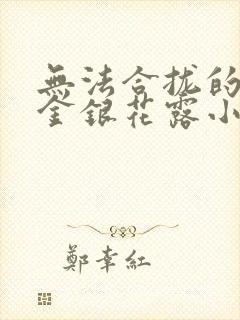 無法合拢的
金銀花露小
鄭幸紅